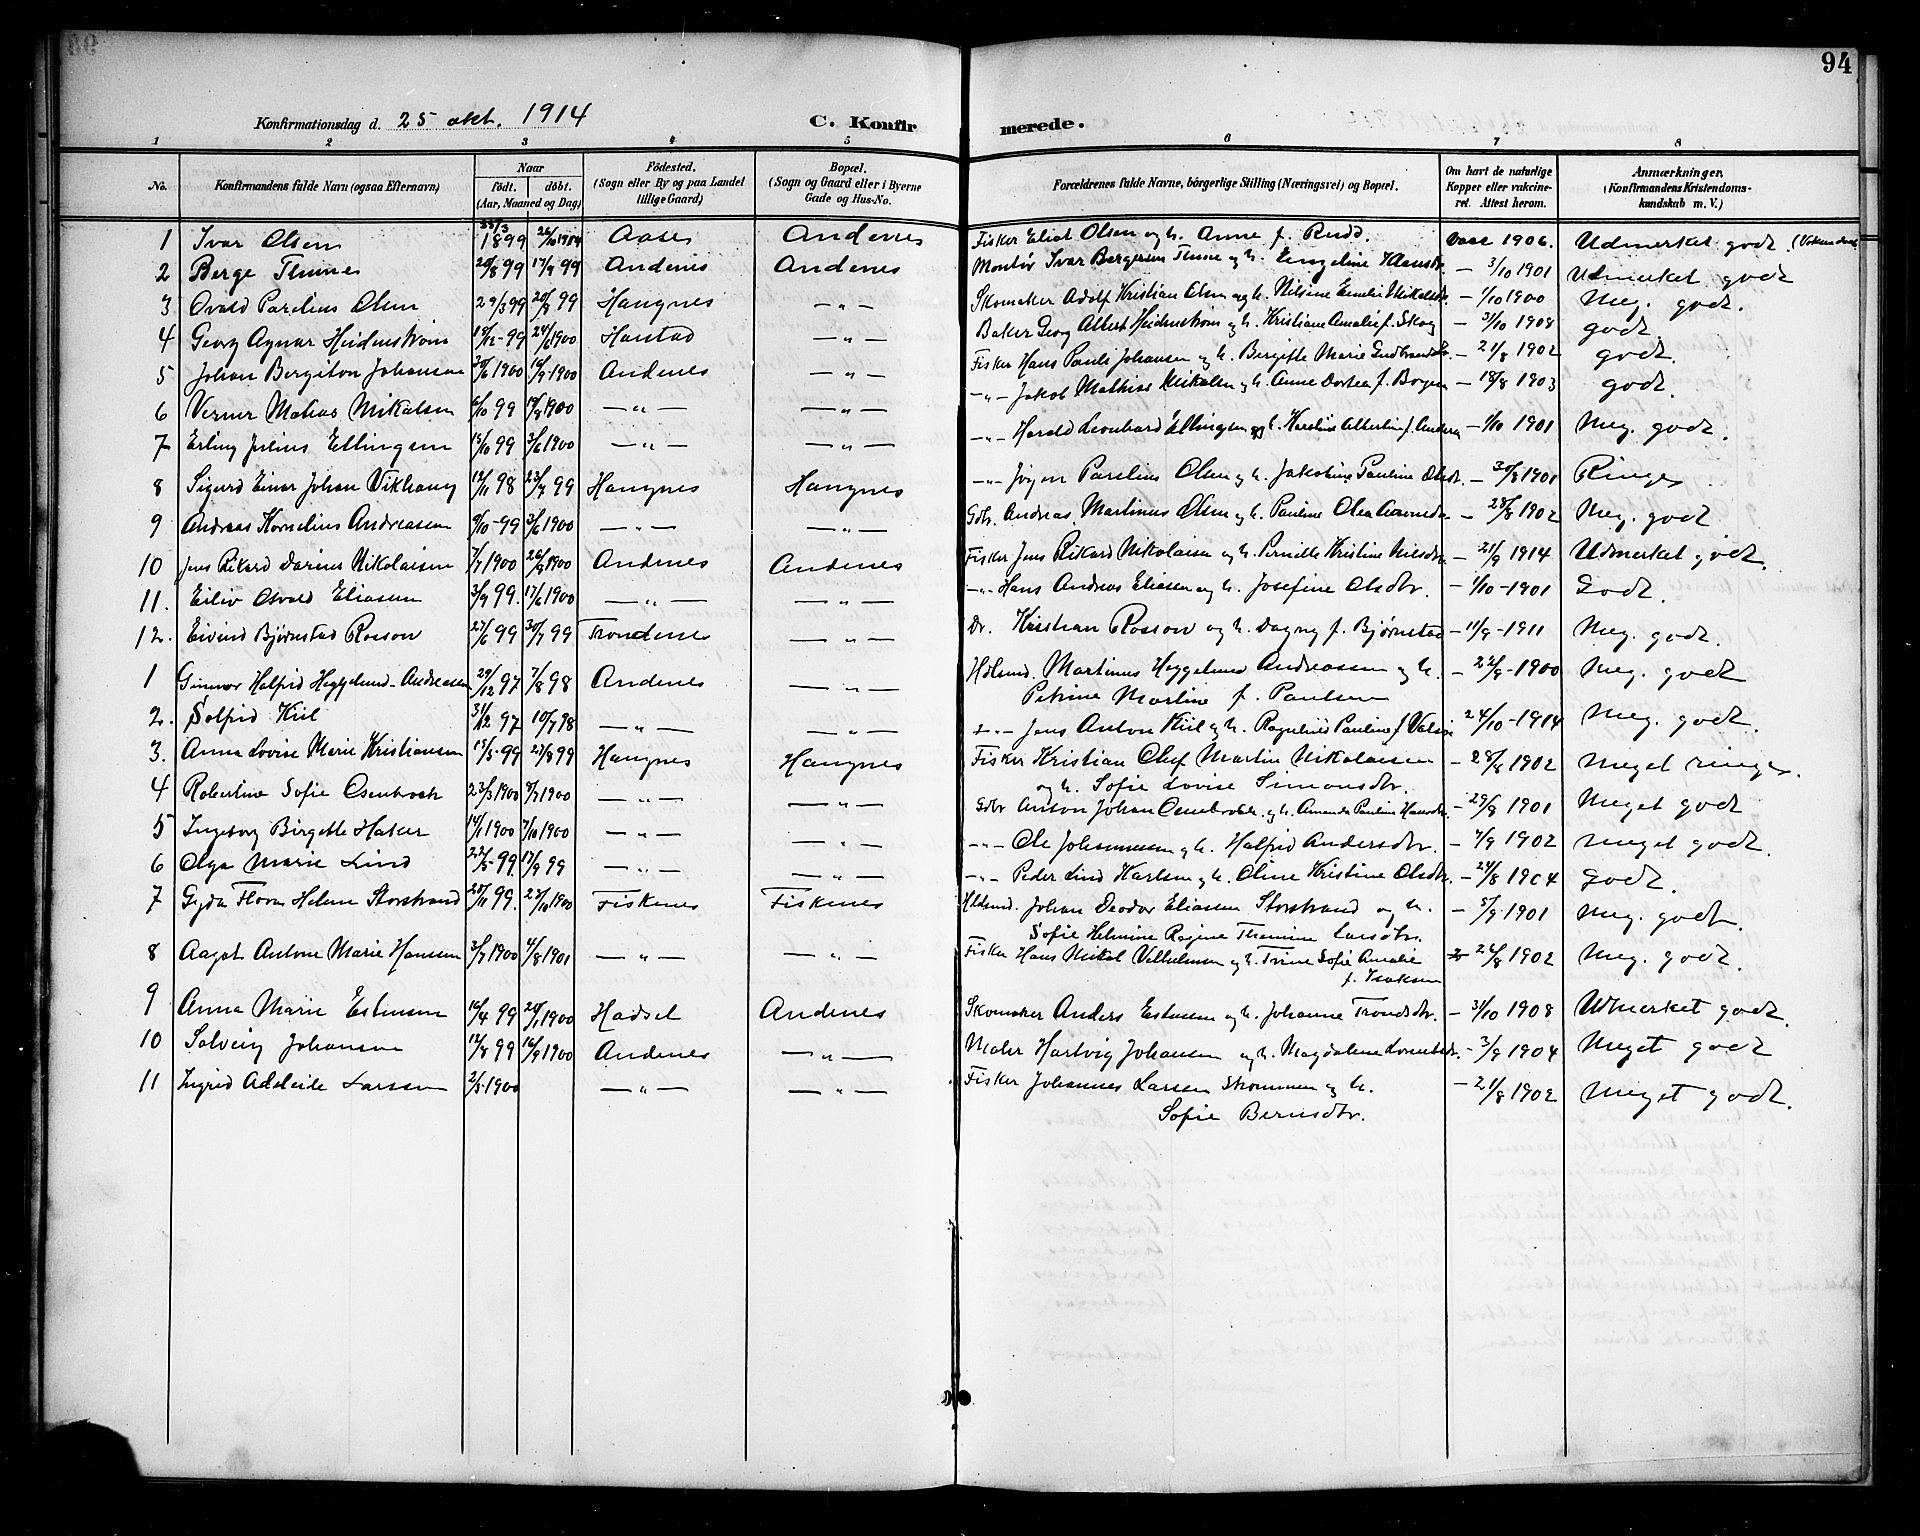 94
Konfirmationsdag d. 25 okt. 1914 C. Konfir merede.
1 2 3 4 5 6 7 8
No. Konfirmandens fulde Navn (ogsaa Efternavn) Naar födt. döbt. (Aar, Maaned og Dag) Födested. (Sogn eller By og paa Landet tillige Gaard) Bopæl. (Sogn og Gaard eller i Byerne Gade og Hus-No. Forældrenes fulde Navne, börgerlige Stilling (Næringsvei) og Bopæl. Om havt de naturlige Kopper eller vakcineret. Attest herom. Anmærkninger, (Konfirmandens Kristendomskundskab m. V.)
1 Ivar Olsen 1899 22/10 1914 Aases Andenes Fisker Eliot Olsen og h. Anne f. Rudd. Vacc 1906. Udmerket godt
2 Berge Thunes 20/8 99 17/9 99 Andenes Andenes Montör Ivar Bergersen Thune og h. Engeline Klausdtr. — 3/10 1901 Udmerket godt
3 Osvald Parelius Olsen 29/3 99 20/8 99 Haugnes — " — Skomaker Adolf Kristian Olsen og h. Nilsine Emelie Mikalsdtr. — 1/10 1900 Meg. godt.
4 Georg Agnar Heidenstrøm 18/12-99 24/6 1900 Harstad — " — Baker Georg Albert Heidenstrøm og h. Kristiane Amalie f. Skog — 31/10 1908 godt
5 Johan Bergiton Johansen 30/6 1900 16/9-1900 Andenes — " — Fisker Hans Pauli Johansen og h. Bergitte Marie Gudbrandsdtr. — 21/8 1902 godt.
6 Verner Matias Mikalsen 6/10 99 19/8 1900 — " — — " — — " — Jakob Mathias Mikalsen og h. Anne Dortea f. Borgen — 18/8 1903 godt.
7 Erling Julius Ellingsen 13/10 99 3/6 1900 — " — — " — — " — Harald Leonhard Ellingsen og h. Karoline Albertine f. Anders — 1/10 1901 Meg. godt.
8 Sigurd Einar Johan Vikhaug 12/11 98 23/7 99 Haugnes Haugnes — " — Jørgen Parelius Olsen og h. Jakobine Pauline Olsdtr. — 30/8 1901 Ringes
9 Andreas Kornelius Andreasen 9/10-99 3/6 1900 — " — — " — Gdbr. Andreas Martinus Olsen og h. Pauline Olea — 28/8 1902 Meg. godt
10 Jens Rikard Darius Nikolaisen 7/7 1900 26/8 1900 Andenes Andenes Fisker Jens Rikard Nikolaisen og h. Pernille Kristine Nilsdtr. — 21/9 1914 Udmerket godt.
11. Eiliv Osvald Eliasen 3/9 99. 17/6 1900 — " — — " — — " — Hans Andreas Eliasen og h. Josefine Olsdtr. — 1/10-1901 Godt.
12. Eivind Bjørnstad Rosson 27/6 99 30/7 99 Trondenes — " — Dr. Kristian Rosson og h. Dagny f. Bjørnstad — 11/9-1911 Meg. godt.
1 Gunvor Halfrid Heggelund-Andreasen 29/12 97 7/8 98 Andenes — " — Hdlsmd. Martinus Heggelund Andreassen og h. — 22/8-1900 Meg. godt
Petrine Martine f. Paulsen
2. Solfrid Kiil 31/12 97 10/7 98 — " — — " — — " — Jens Anton Kiil og h. Ragnhild Pauline f. 24/10-1914 Meg. godt.
3. Anna Lovise Marie Kristiansen 15/5-99 27/8 99 Haugnes Haugnes Fisker Kristian Oluf Martin Nikolaisen — 28/8 1902 Meget ringes.
og h. Sofie Lovise Simonsdtr.
4 Robertine Sofie Osenbroch 23/3 1900 8/7 1900 — " — — " — Gdbr Anton Johan Osenbroch og h. Amanda Pauline Hansdtr. — 29/8 1901 Meget godt
5 Ingeborg Birgitte Haker 14/1 1900 7/10 1900 — " — — " — — " — Ole Johannessen og h. Halfrid Andersdtr. — 7/9 1902 Meget godt.
6 Olga Marie Lind 22/5-99 17/9 99 — " — — " — — " — Peder Lind Karlsen og h. Oline Kristine Olsdtr. — 24/8 1904 Godt.
7 Gyda Flora Helene Storstrand 20/11 99. 23/10 1900 Fiskenes Fiskenes Hdlsmd. Johan Deodor Eliasen Storstrand og h. — 5/9 1901 Meg. godt.
Sofie Helmine Regine Thomine Larsdtr.
8 Aagot Antone Marie Hansen 3/7 1900 4/8 1901 — " — — " — Fisker Hans Nikal Vilhelmsen og h. Trine Sofie Amalie 26/8 1902 Meg. godt.
f. Isaksen
9 Anna Marie Estensen 16/4 99 28/1 1900 Hadsel Andenes Skomaker Anders Estensen og h. Johanne Trondsdtr. — 31/10 1908 Udmerket godt.
10 Solveig Johansen 12/8 99 16/9 1900 Andenes — " — Maler Hartvig Johansen og h. Magdalene — 3/9 1904 Meget godt
11 Ingrid Adeleide Larssen 2/5-1900 — " — — " — Fisker Johannes Larsen Strømmen og h. — 21/8 1902 Meget godt.
Sofie Berntsdtr.